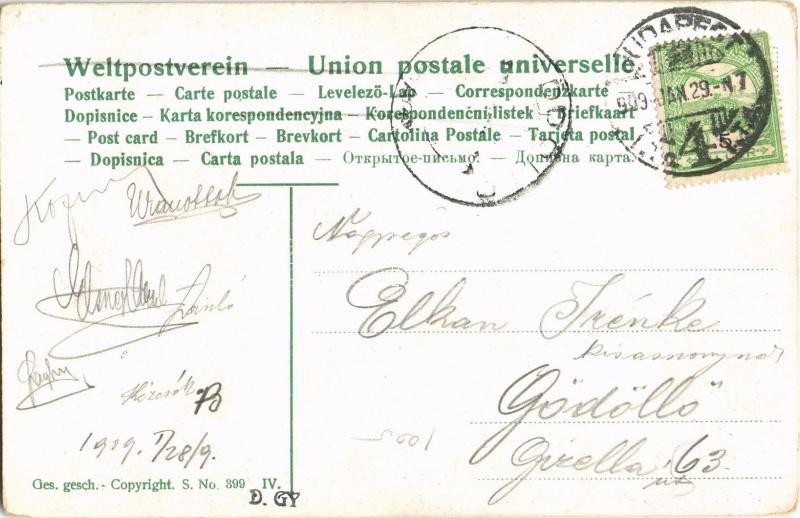 Weltpostverein — Union postale universelle
Postkarte — Carte postale — Levelező-Lap — Correspondenzkarte
Dopisnice - Karta korespondencyjna — Korespondenčni listek — Briefkaart
— Post card — Brefkort — Brevkort — Cartolina Postale — Tarjeta postal
— Dopisnica — Carta postala — Открытое-письмо — Дописна карта.
BUDAPEST
909 JAN. 29.-N7
Nagyságos
Elkan Irénke
kisasszonynak
Gödöllő
Gizella 63
László
Kézcsók
1909. I/28/9.
Ges. gesch. - Copyright. S. No. 399 IV.
D. GY